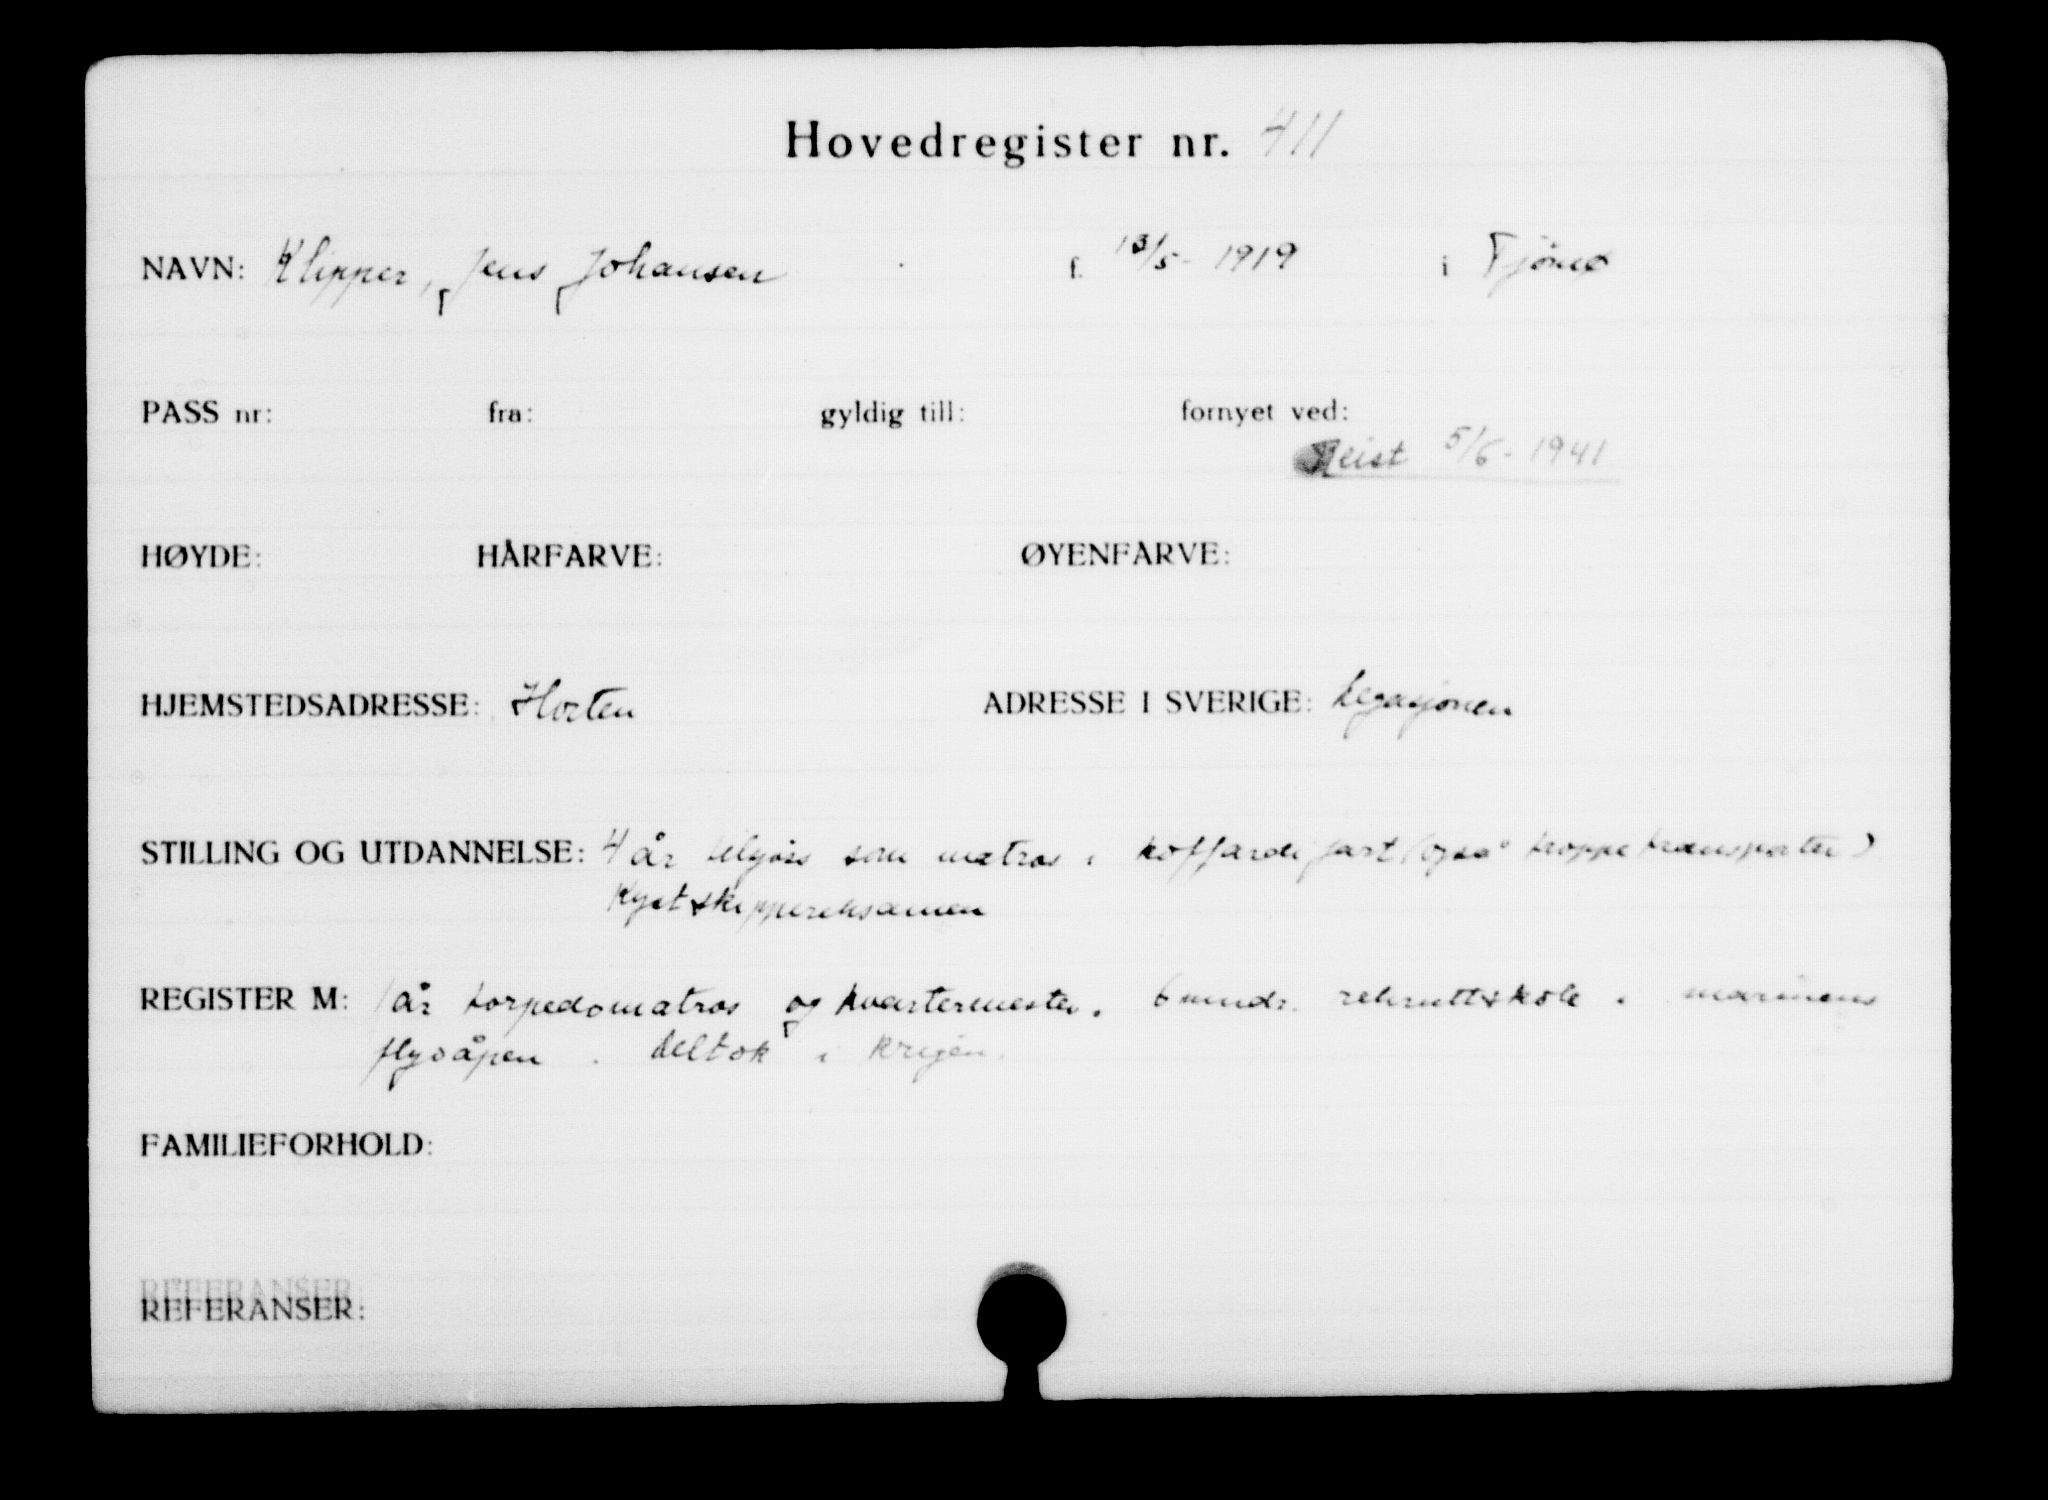 Hovedregister nr. 411
NAVN: Klipper, Jens Johansen f. 13/5 - 1919 i Tjömø
PASS nr: fra: gyldig till: fornyet ved:
Reist 5/6 - 1941
HØYDE: HÅRFARVE: ØYENFARVE:
HJEMSTEDSADRESSE: Horten ADRESSE I SVERIGE: Legasjonen
STILLING OG UTDANNELSE: 4 år tilsjøss som matros i koffardifart (også troppetransporter)
Kystskippereksamen
REGISTER M: 1 år torpedomatros og kvartermester. 6 mndr. rekruttskole i marinens
flyvåpen. Deltok i krigen.
FAMILIEFORHOLD:
REFERANSER:
REFERANSER: